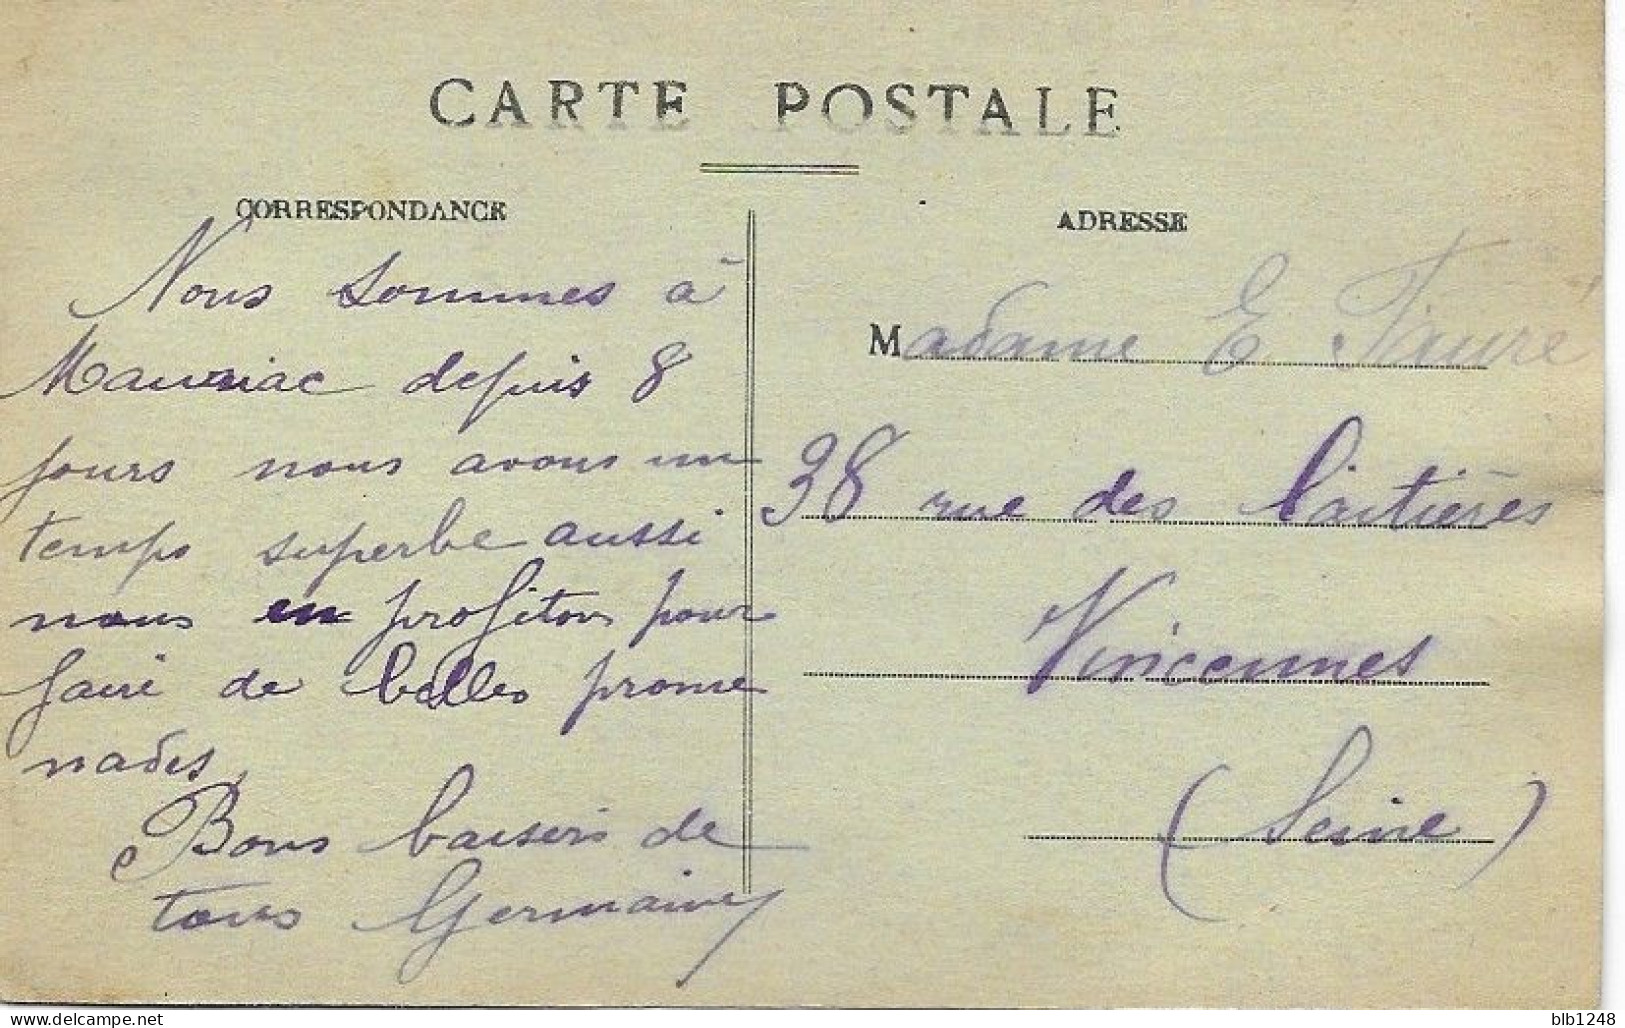 CARTE POSTALE
CORRESPONDANCE
Nous sommes à
Mauriac depuis 8
jours nous avons un
temps superbe aussi
nous en profitons pour
faire de belles prome
nades,
Bons baisers de
tous Germaine
ADRESSE
Madame E Faure
38 rue des Laitières
Vincennes
(Seine)
delcampe.net
blb1248